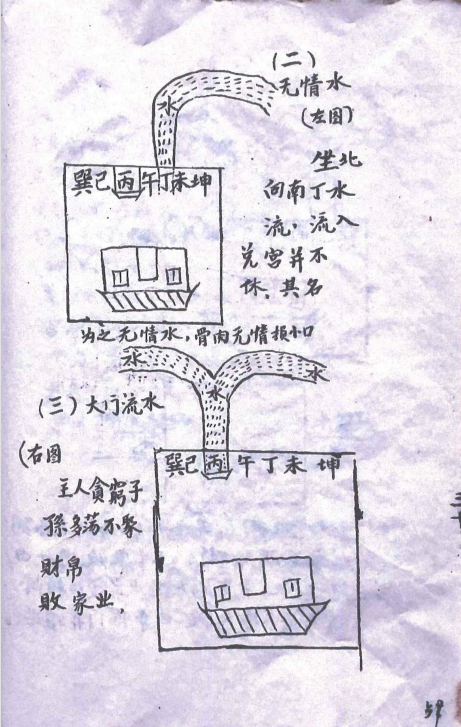 (二)
无情水
(左图)
水
坐北
向南丁水
流，流入
兑宫并不
休，其名
巽巳丙午丁未坤
为之无情水，骨肉无情损小口
水
水
水
(三)大门流水
(右图
巽巳丙午丁未坤
主人貪窮子
孫多荡不聚
財帛
敗家业，
59